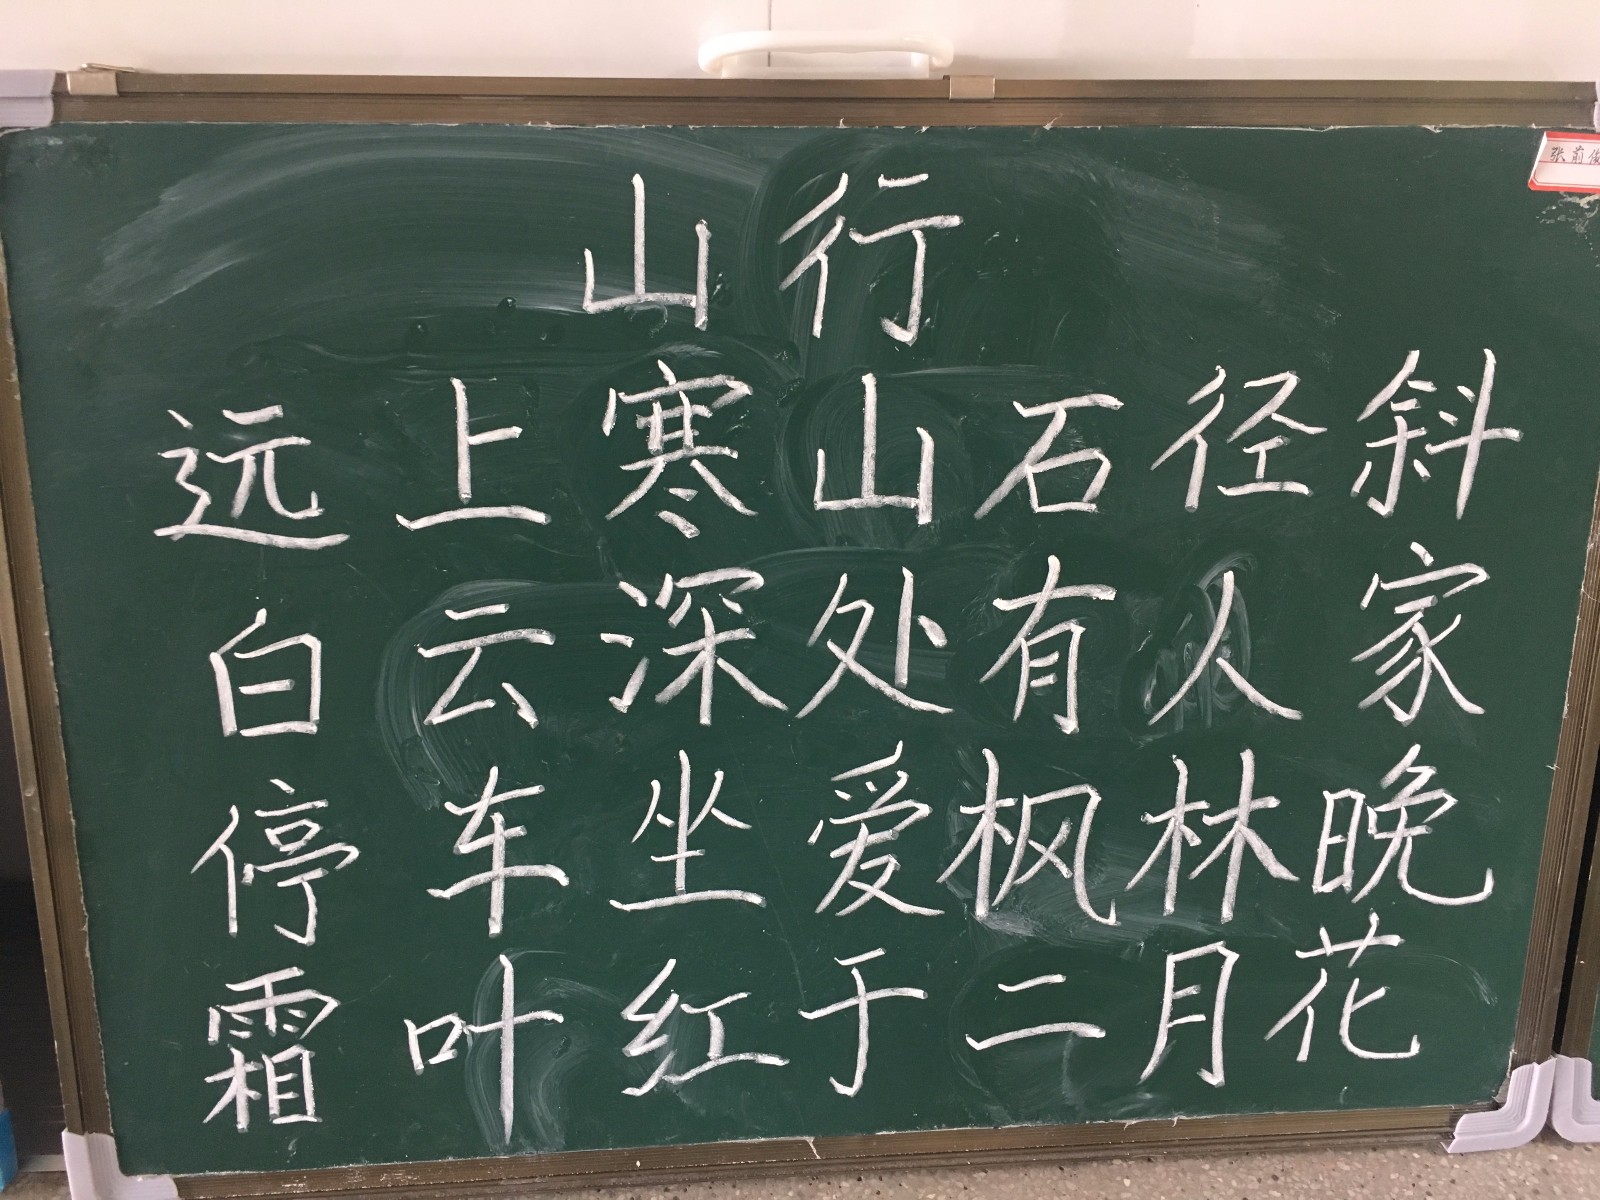 山行
远上寒山石径斜
白云深处有人家
停车坐爱枫林晚
霜叶红于二月花
张前